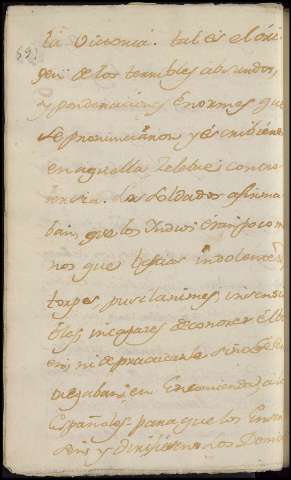 la Victoria. tal es el óri
gen de los terribles absurdos,
y ponderaciones énormes que
se pronunciaron y éscribiéron
en aquella Celebre contro
bersia. Los Soldados afirma
ban, que los Indios éran poco me
nos que bestias indolentes
torpes pusilanimes, insensi
bles, incapaces de conocer él b
en, ni de practicarle sino Se
tregaban, en Encomienda, á los
Españoles para que los Ense
ñen y dirijiesen. Los Domi